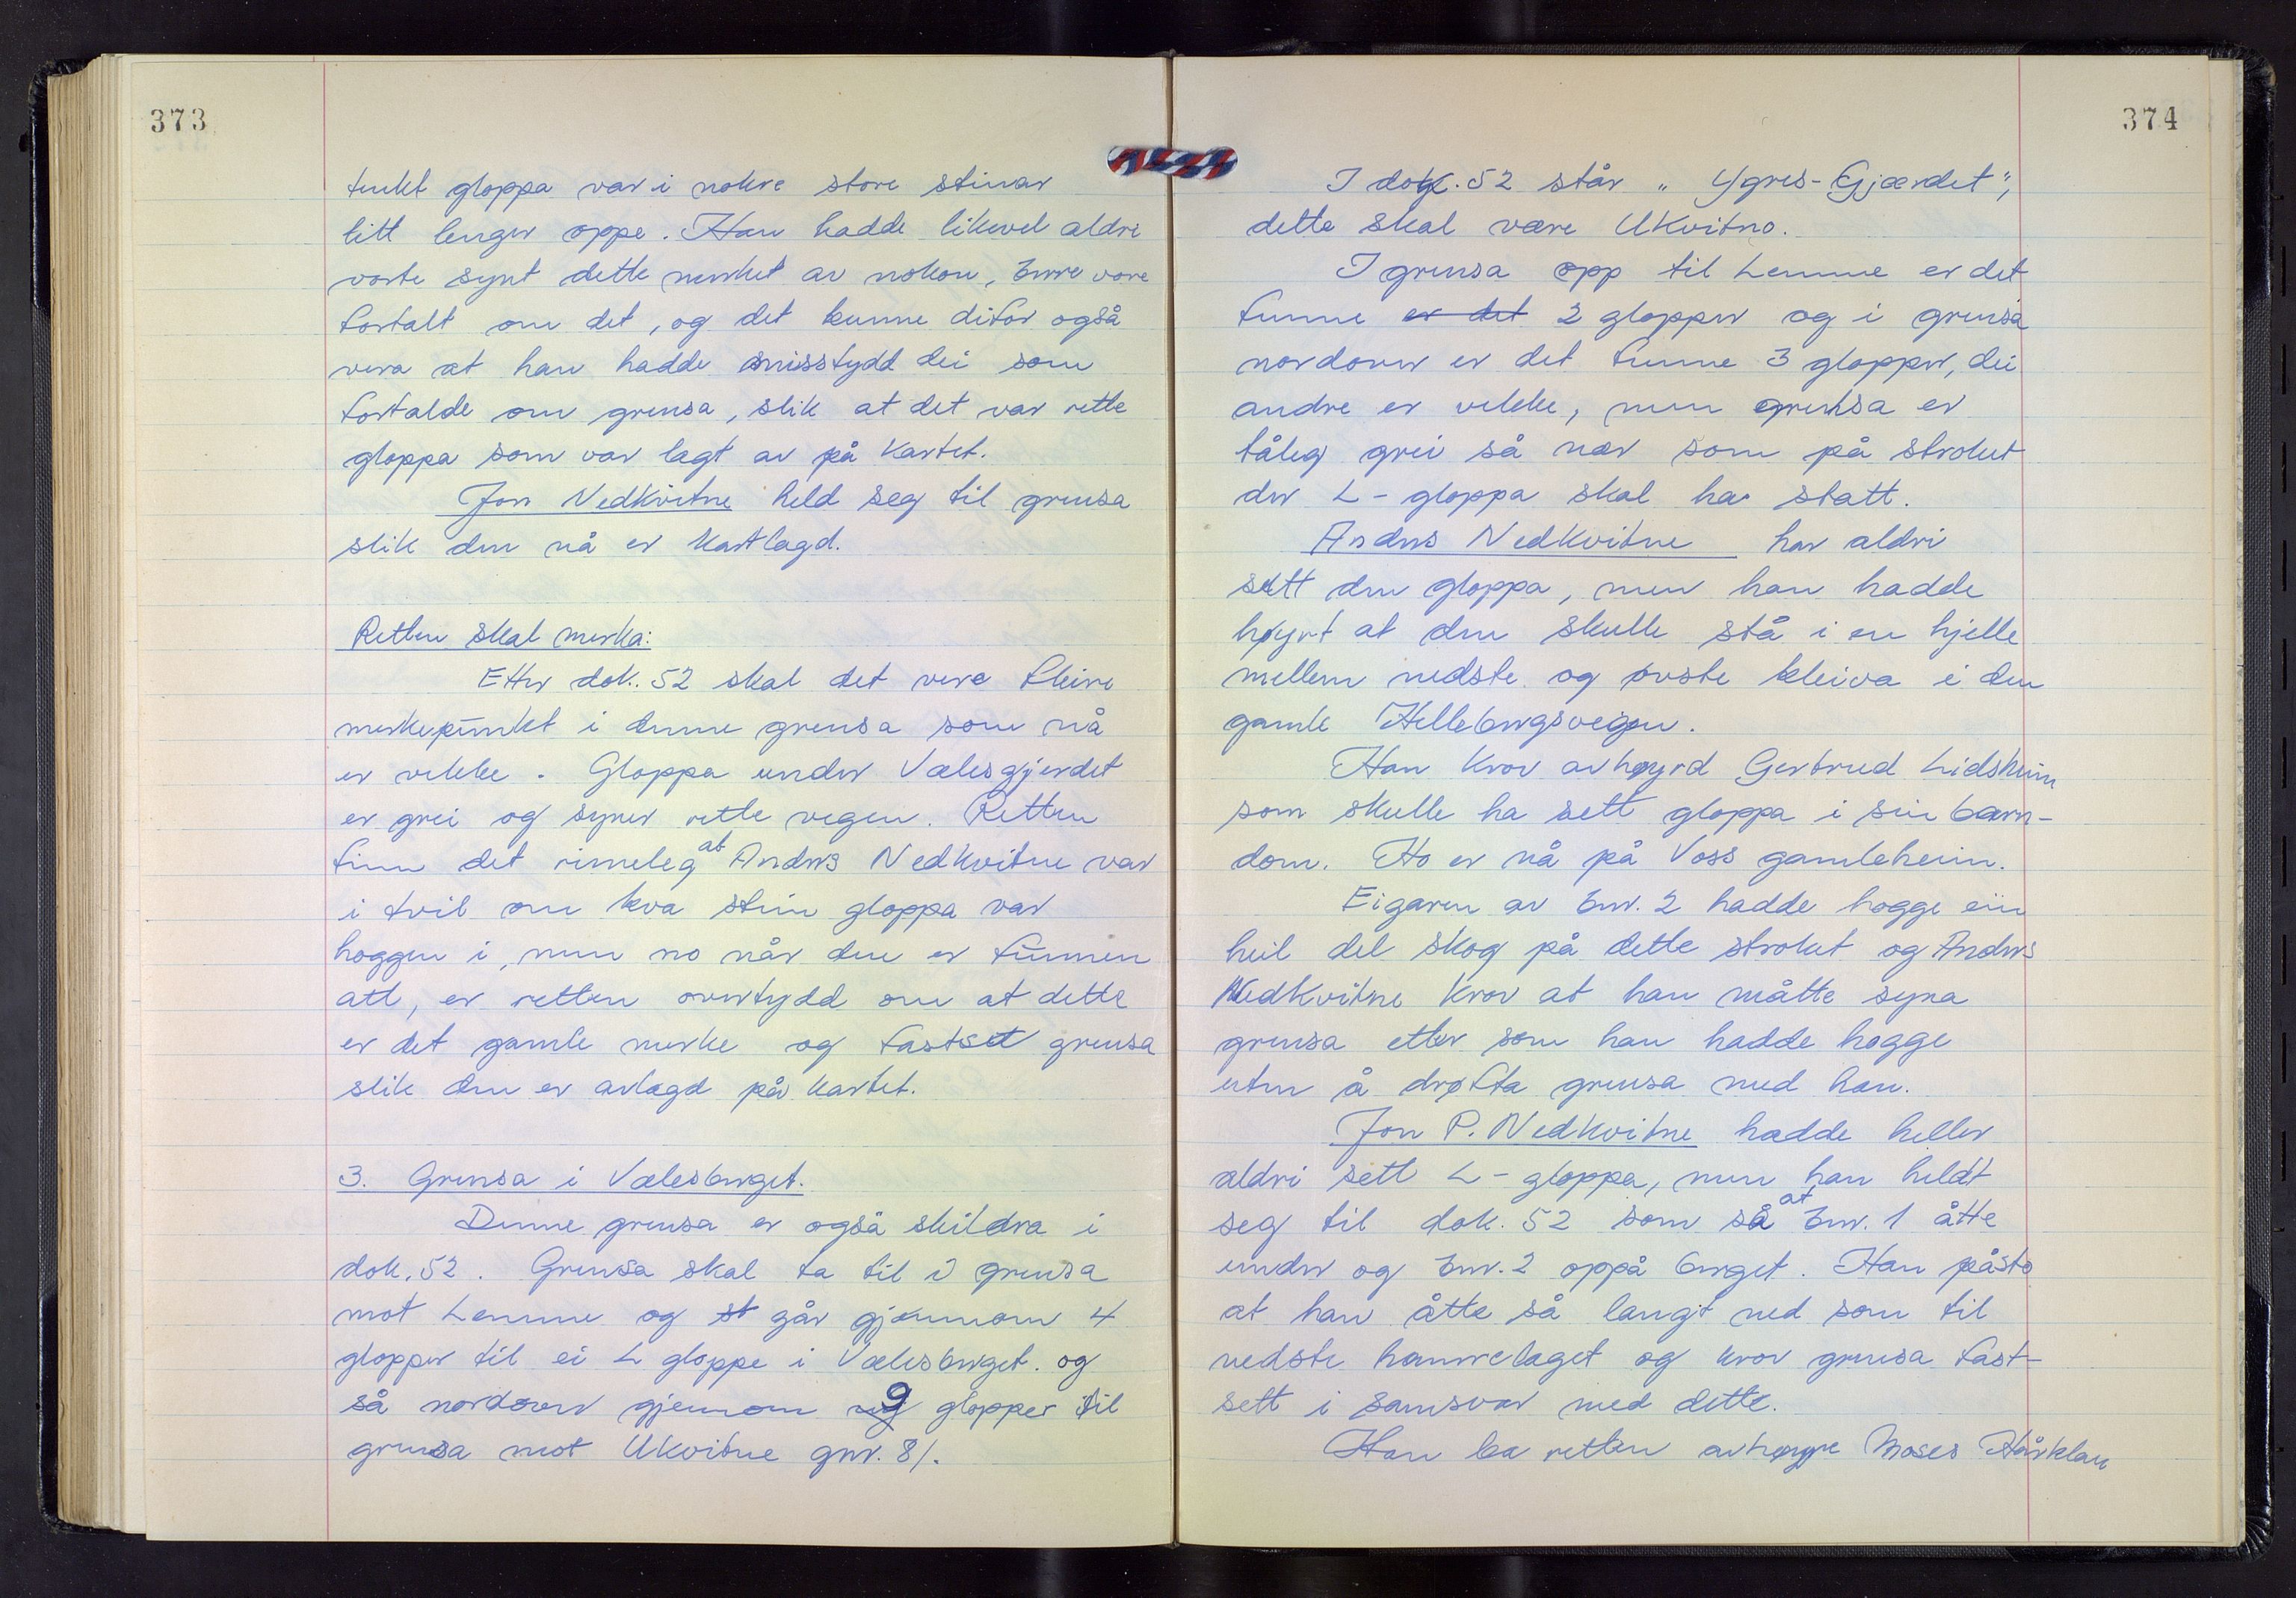 373
tenkt gloppa var i nokre store steinar
litt lenger oppe. Han hadde likevel aldri
vorte synt dette merket av nokon, bare vore
fortalt om det, og det kunne difor også
vera at han hadde misstydd dei som
fortalde om grensa, slik at det var rette
gloppa som var lagt av på kartet.
Jon Nedkvitne held seg til grensa
slik den nå er kartlagd.
Retten skal merka:
Etter dok. 52 skal det vere fleire
merkepunkt i denne grensa som nå
er vekke. Gloppa under Vælesgjerdet
er grei og syner rette vegen. Retten
finn det rimeleg at Anders Nedkvitne var
i tvil om kva stein gloppa var
hoggen i, men no når den er funnen
att, er retten overtydd om at dette
er det gamle merke og fastset grensa
slik den er avlagd på kartet.
3. Grensa i Vælesberget.
Denne grensa er også skildra i
dok. 52. Grensa skal ta til i grensa
mot Lemme og st går gjennom 4
glopper til ei L gloppe i Vælesberget. og
så nordover gjennom 9 glopper til
grensa mot Ukvitne gnr. 81.
374
I dok. 52 står "Ygres-Gjærdet",
dette skal være Ukvitno.
I grensa opp til Lemme er det
funne er det 2 glopper og i grensa
nordover er det funne 3 glopper, dei
andre er vekke, men grensa er
tåleg grei så nær som på stroket
der L-gloppa skal ha statt.
Anders Nedkvitne har aldri
sett den gloppa, men han hadde
høyrt at den skulle stå i en hjelle
mellem nedste og øvste kleiva i den
gamle Hellebergsvegen.
Han krov avhøyrd Gertrud Lidsheim
som skulle ha sett gloppa i sin barn-
dom. Ho er nå på Voss gamleheim.
Eigaren av bnr. 2 hadde hogge ein
heil del skog på dette stroket og Anders
Nedkvitne krov at han måtte syna
grensa etter som han hadde hogge
uten å drøfta grensa med han.
Jon P. Nedkvitne hadde heller
aldri sett L-gloppa, men han heldt
seg til dok. 52 som så at bnr. 1 åtte
under og bnr. 2 oppå berget. Han påsto
at han åtte så langt ned som til
nedste hamrelaget og krov grensa fast-
sett i samsvar med dette.
Han ba retten avhøyre Moses Hårklau